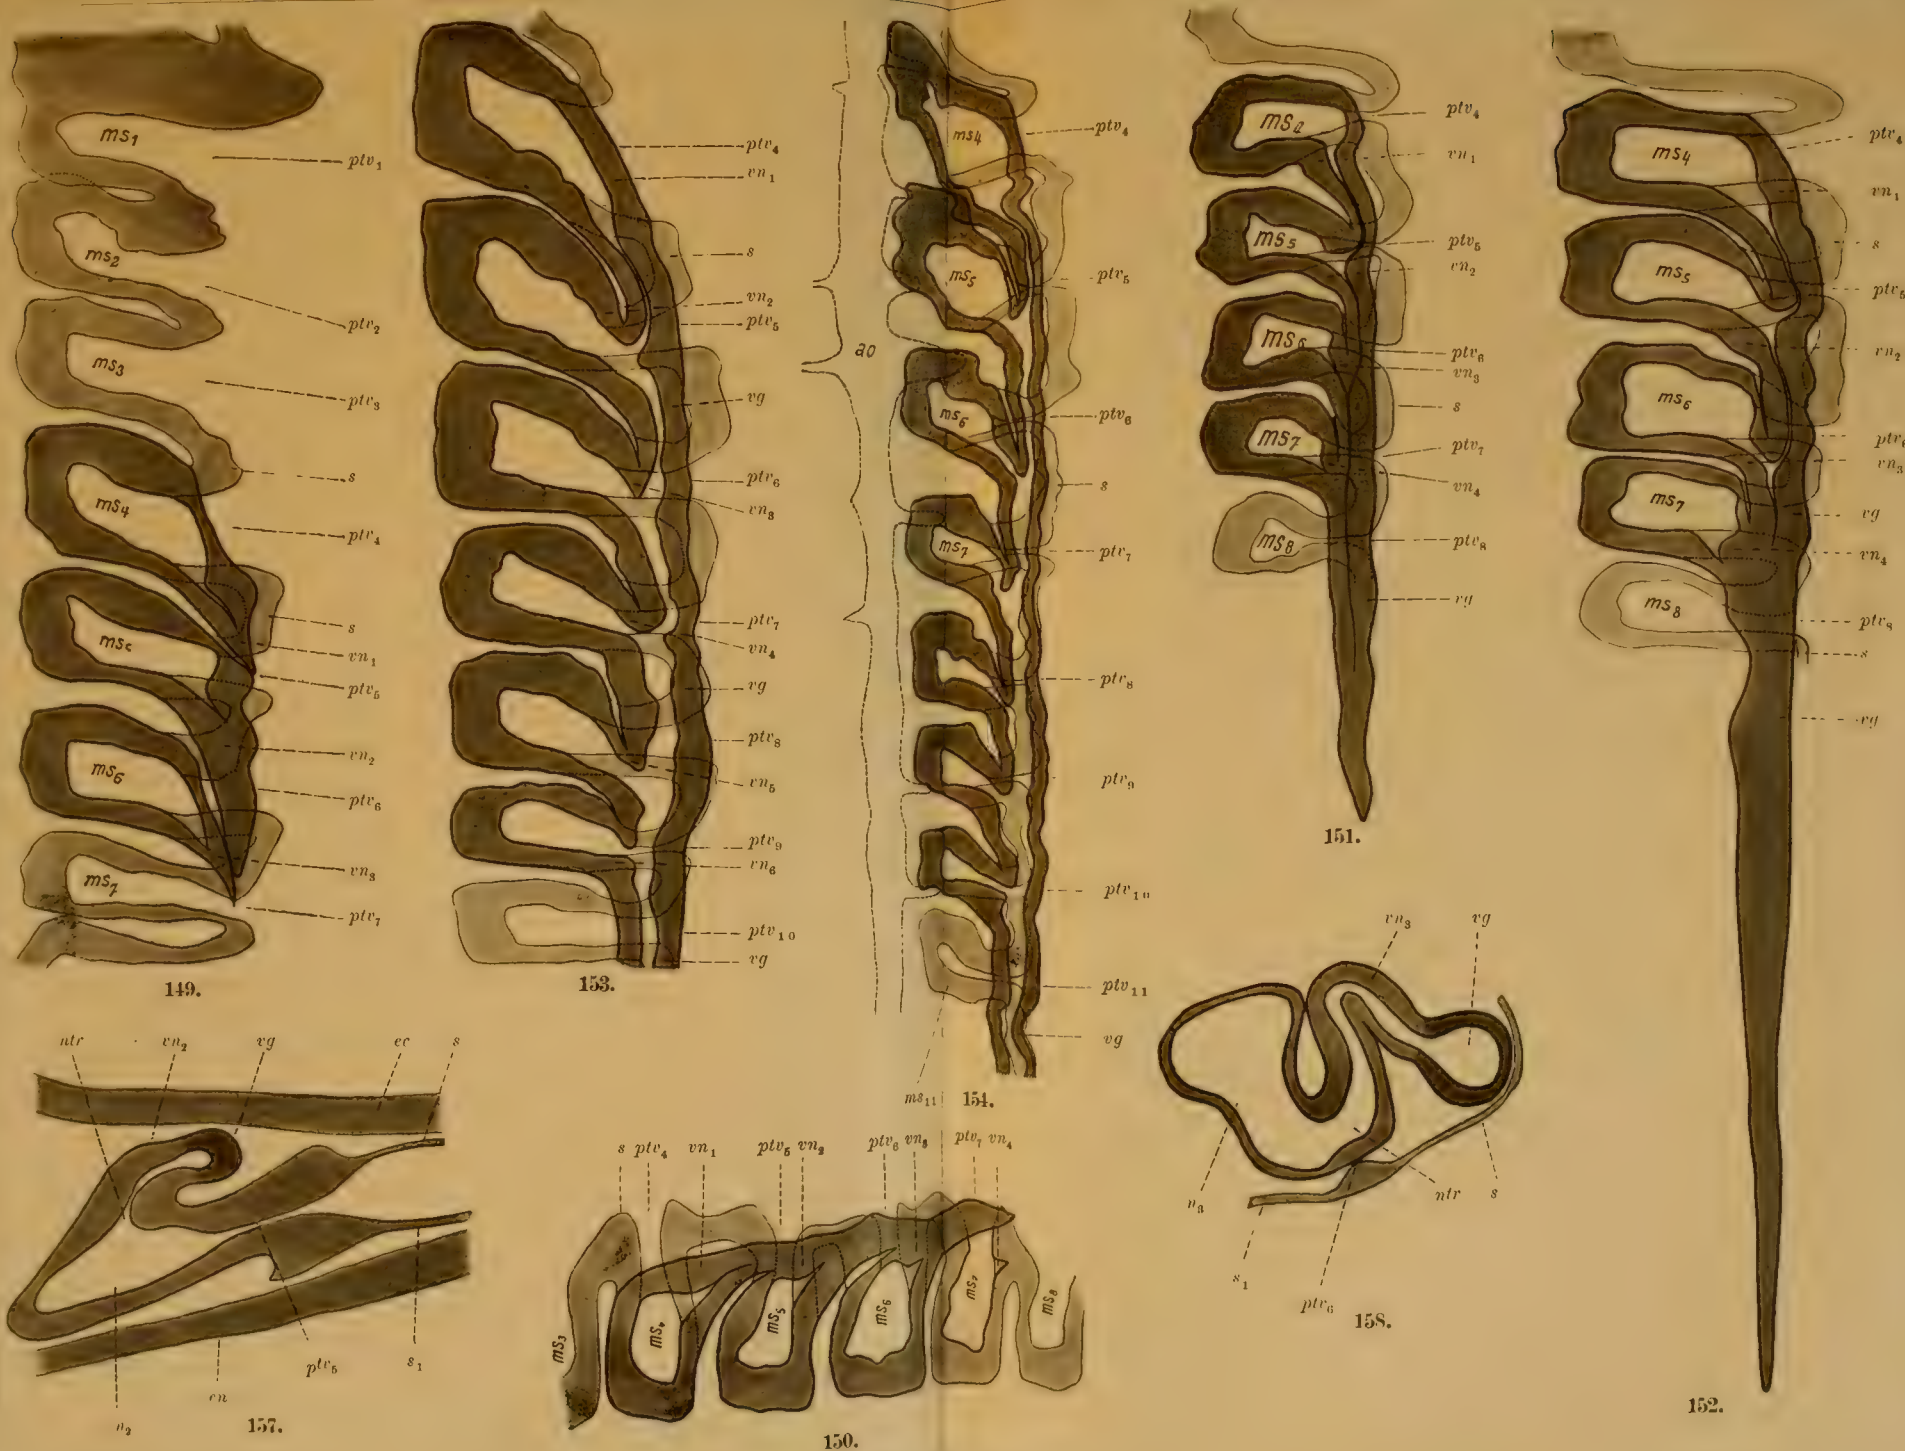 ms1
ptv1
ms2
ptv2
ms3
ptv3
s
ms4
ptv4
s
ms5
vn1
ptv5
vn2
ms6
ptv6
vn3
ms7
ptv7
149.
ptv4
vn1
s
vn2
ptv5
vg
ptv6
vn3
ptv7
vn4
vg
ptv8
vn5
ptv9
vn6
ptv10
vg
153.
ao
ms4
ptv4
ms5
ptv5
ms6
ptv6
s
ms7
ptv7
ptv8
ptv9
ptv10
ptv11
vg
ms11
154.
ms4
ptv4
vn1
ms5
ptv5
vn2
ms6
ptv6
vn3
s
ms7
ptv7
vn4
ms8
ptv8
vg
151.
ms4
ptv4
vn1
s
ms5
ptv5
vn2
ms6
ptv6
vn3
ms7
vg
vn4
ms8
ptv8
s
vg
152.
ntr vn2 vg ec s
n2 en ptv5 s1
157.
s ptv4 vn1 ptv5 vn2 ptv6 vn3 ptv7 vn4
ms3 ms4 ms5 ms6 ms7 ms8
150.
vn3 vg
n3 s1 ptv6 ntr s
158.